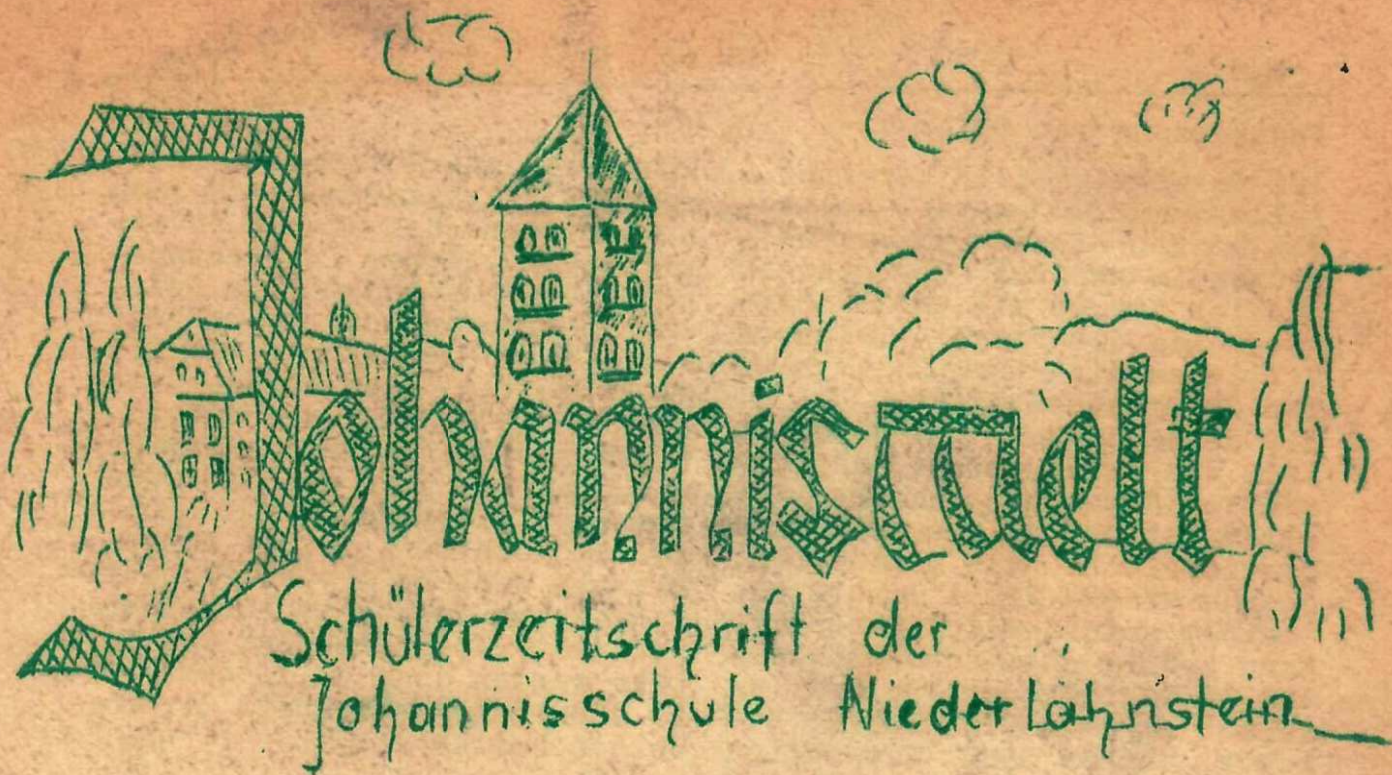 Johanniswelt
Schülerzeitschrift der
Johannisschule Niederlahnstein